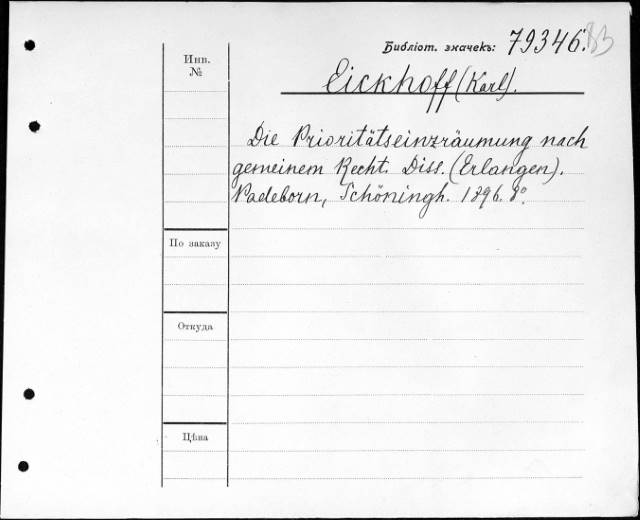 Библіот. значекъ: 79346. 83
Инв.
№
Eickhoff (Karl).
Die Prioritätseinzräumung nach
gemeinem Recht. Diss. (Erlangen).
Padeborn, Schöningh. 1896. 8°.
По заказу
Откуда
Цѣна